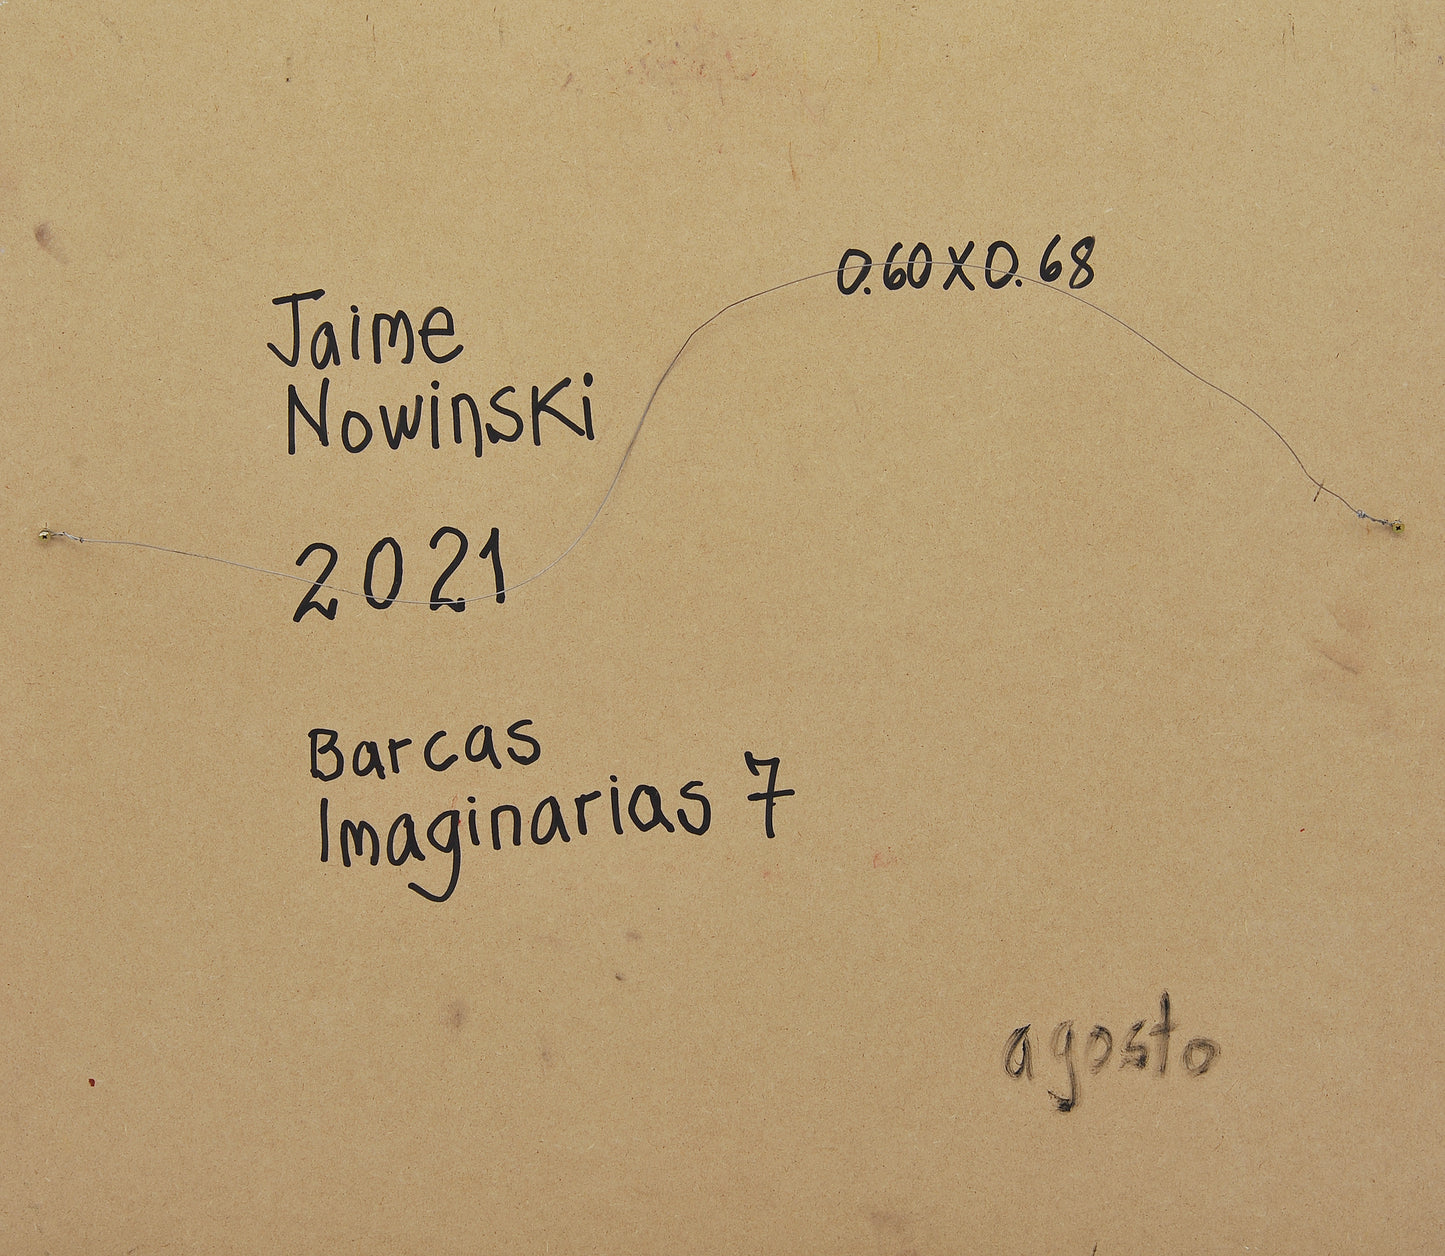 0.60 X 0.68
Jaime
Nowinski
2021
Barcas
Imaginarias 7
agosto